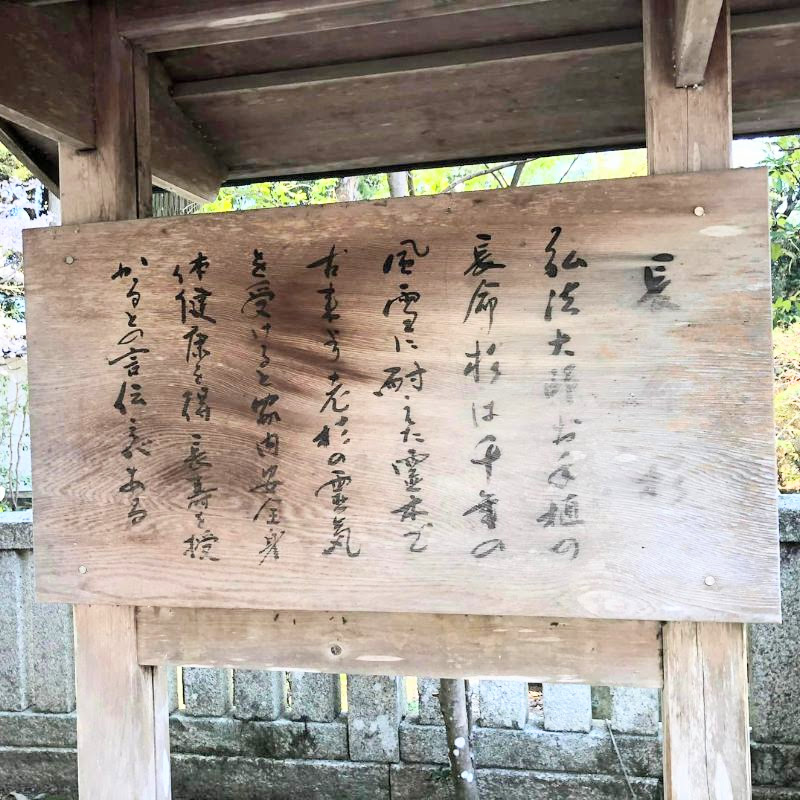 長 杉
弘法大師お手植の
長命杉は千年の
風雪に耐えた霊木で
古来より老杉の霊気
を受けると家内安全身
体健康を得長寿を授
かるとの言伝えがある